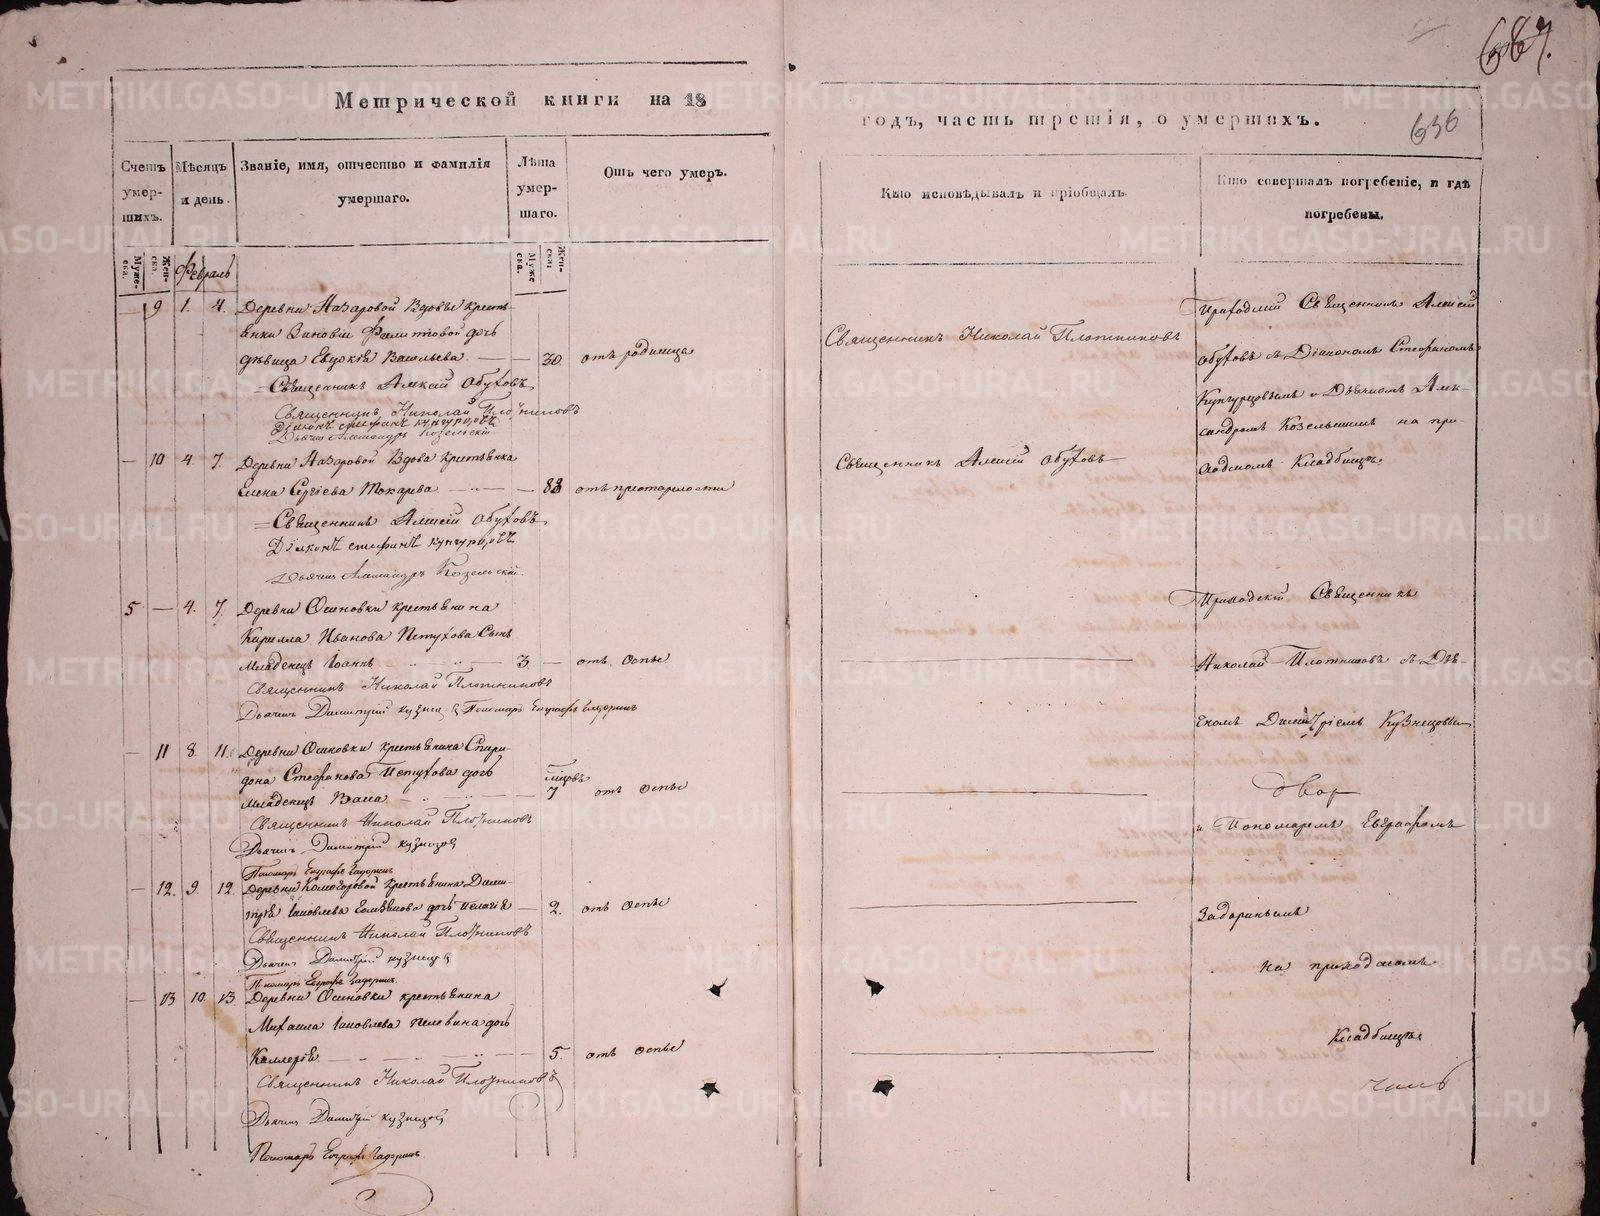 687.
636
Метрической книги на 18
годъ, часть третія, о умершихъ.
Счетъ умер-шихъ.
Мѣсяцъ и день.
Званіе, имя, отчество и фамилія умершаго.
Лѣта умер-шаго.
Отъ чего умеръ.
Кто исповѣдывалъ и пріобщалъ.
Кто совершалъ погребеніе, и гдѣ погребены.
Муже-ска.
Жен-ска
Февраль
Муже ска.
Жен-ска:
— 9 1. 4. Деревни Назаровой Вдовы кресть-
янки Зиновіи Филитовой дочь
дѣвица Евдокія Васильева — — 30. отъ родимца
Священникъ Алексій Обуховъ
Священникъ Николай Плотниковъ
Діаконъ Стефанъ Кунгурцовъ
Дьячекъ Александръ Козельскій
— 10 4. 7. Деревни Назаровой Вдова крестьянка
Елена Сергіева Токарева — — 88 отъ престарелости
Священникъ Алексій Обуховъ
Діаконъ Стефанъ Кунгурцовъ
Дьячекъ Александръ Козельскій
5 — 4. 7. Деревни Осиновки крестьянина
Кирилла Иванова Петухова Сынъ
Младенецъ Іоаннъ — 3 — отъ Оспы
Священникъ Николай Плотниковъ
Дьячекъ Димитрій Кузнецовъ Пономарь Евграфъ Задоринъ
— 11 8 11. Деревни Осиновки крестьянина Спири-
дона Стефанова Петухова дочь
Младенецъ Васса — — 7 отъ Оспы
Священникъ Николай Плотниковъ
Дьячекъ Димитрій Кузнецовъ
Пономарь Евграфъ Задоринъ
— 12. 9. 12. Деревни Комогоровой крестьянина Дими-
трія Іаковлева дочь Пелагія — 2. отъ Оспы
Священникъ Николай Плотниковъ
Дьячекъ Димитрій Кузнецовъ
Пономарь Евграфъ Задоринъ
— 13 10. 13. Деревни Осиновки крестьянина
Михаила Іаковлева Пелевина дочь
Каллерія — — 5. отъ Оспы
Священникъ Николай Плотниковъ
Дьячекъ Димитрій Кузнецовъ
Пономарь Евграфъ Задоринъ
Священникъ Николай Плотниковъ
Священникъ Алексій Обуховъ
Приходскій Священникъ Алексій
Обуховъ съ Діакономъ Стефаномъ
Кунгурцовымъ и Дьячкомъ Алек-
сандромъ Козельскимъ на при-
ходскомъ Кладбищѣ.
Приходскій Священникъ
Николай Плотниковъ съ Дья-
чкомъ Димитріемъ Кузнецовымъ
двор
и Пономаремъ Евграфомъ
Задоринымъ
на приходскомъ
Кладбищѣ.
METRIKI.GASO-URAL.RU